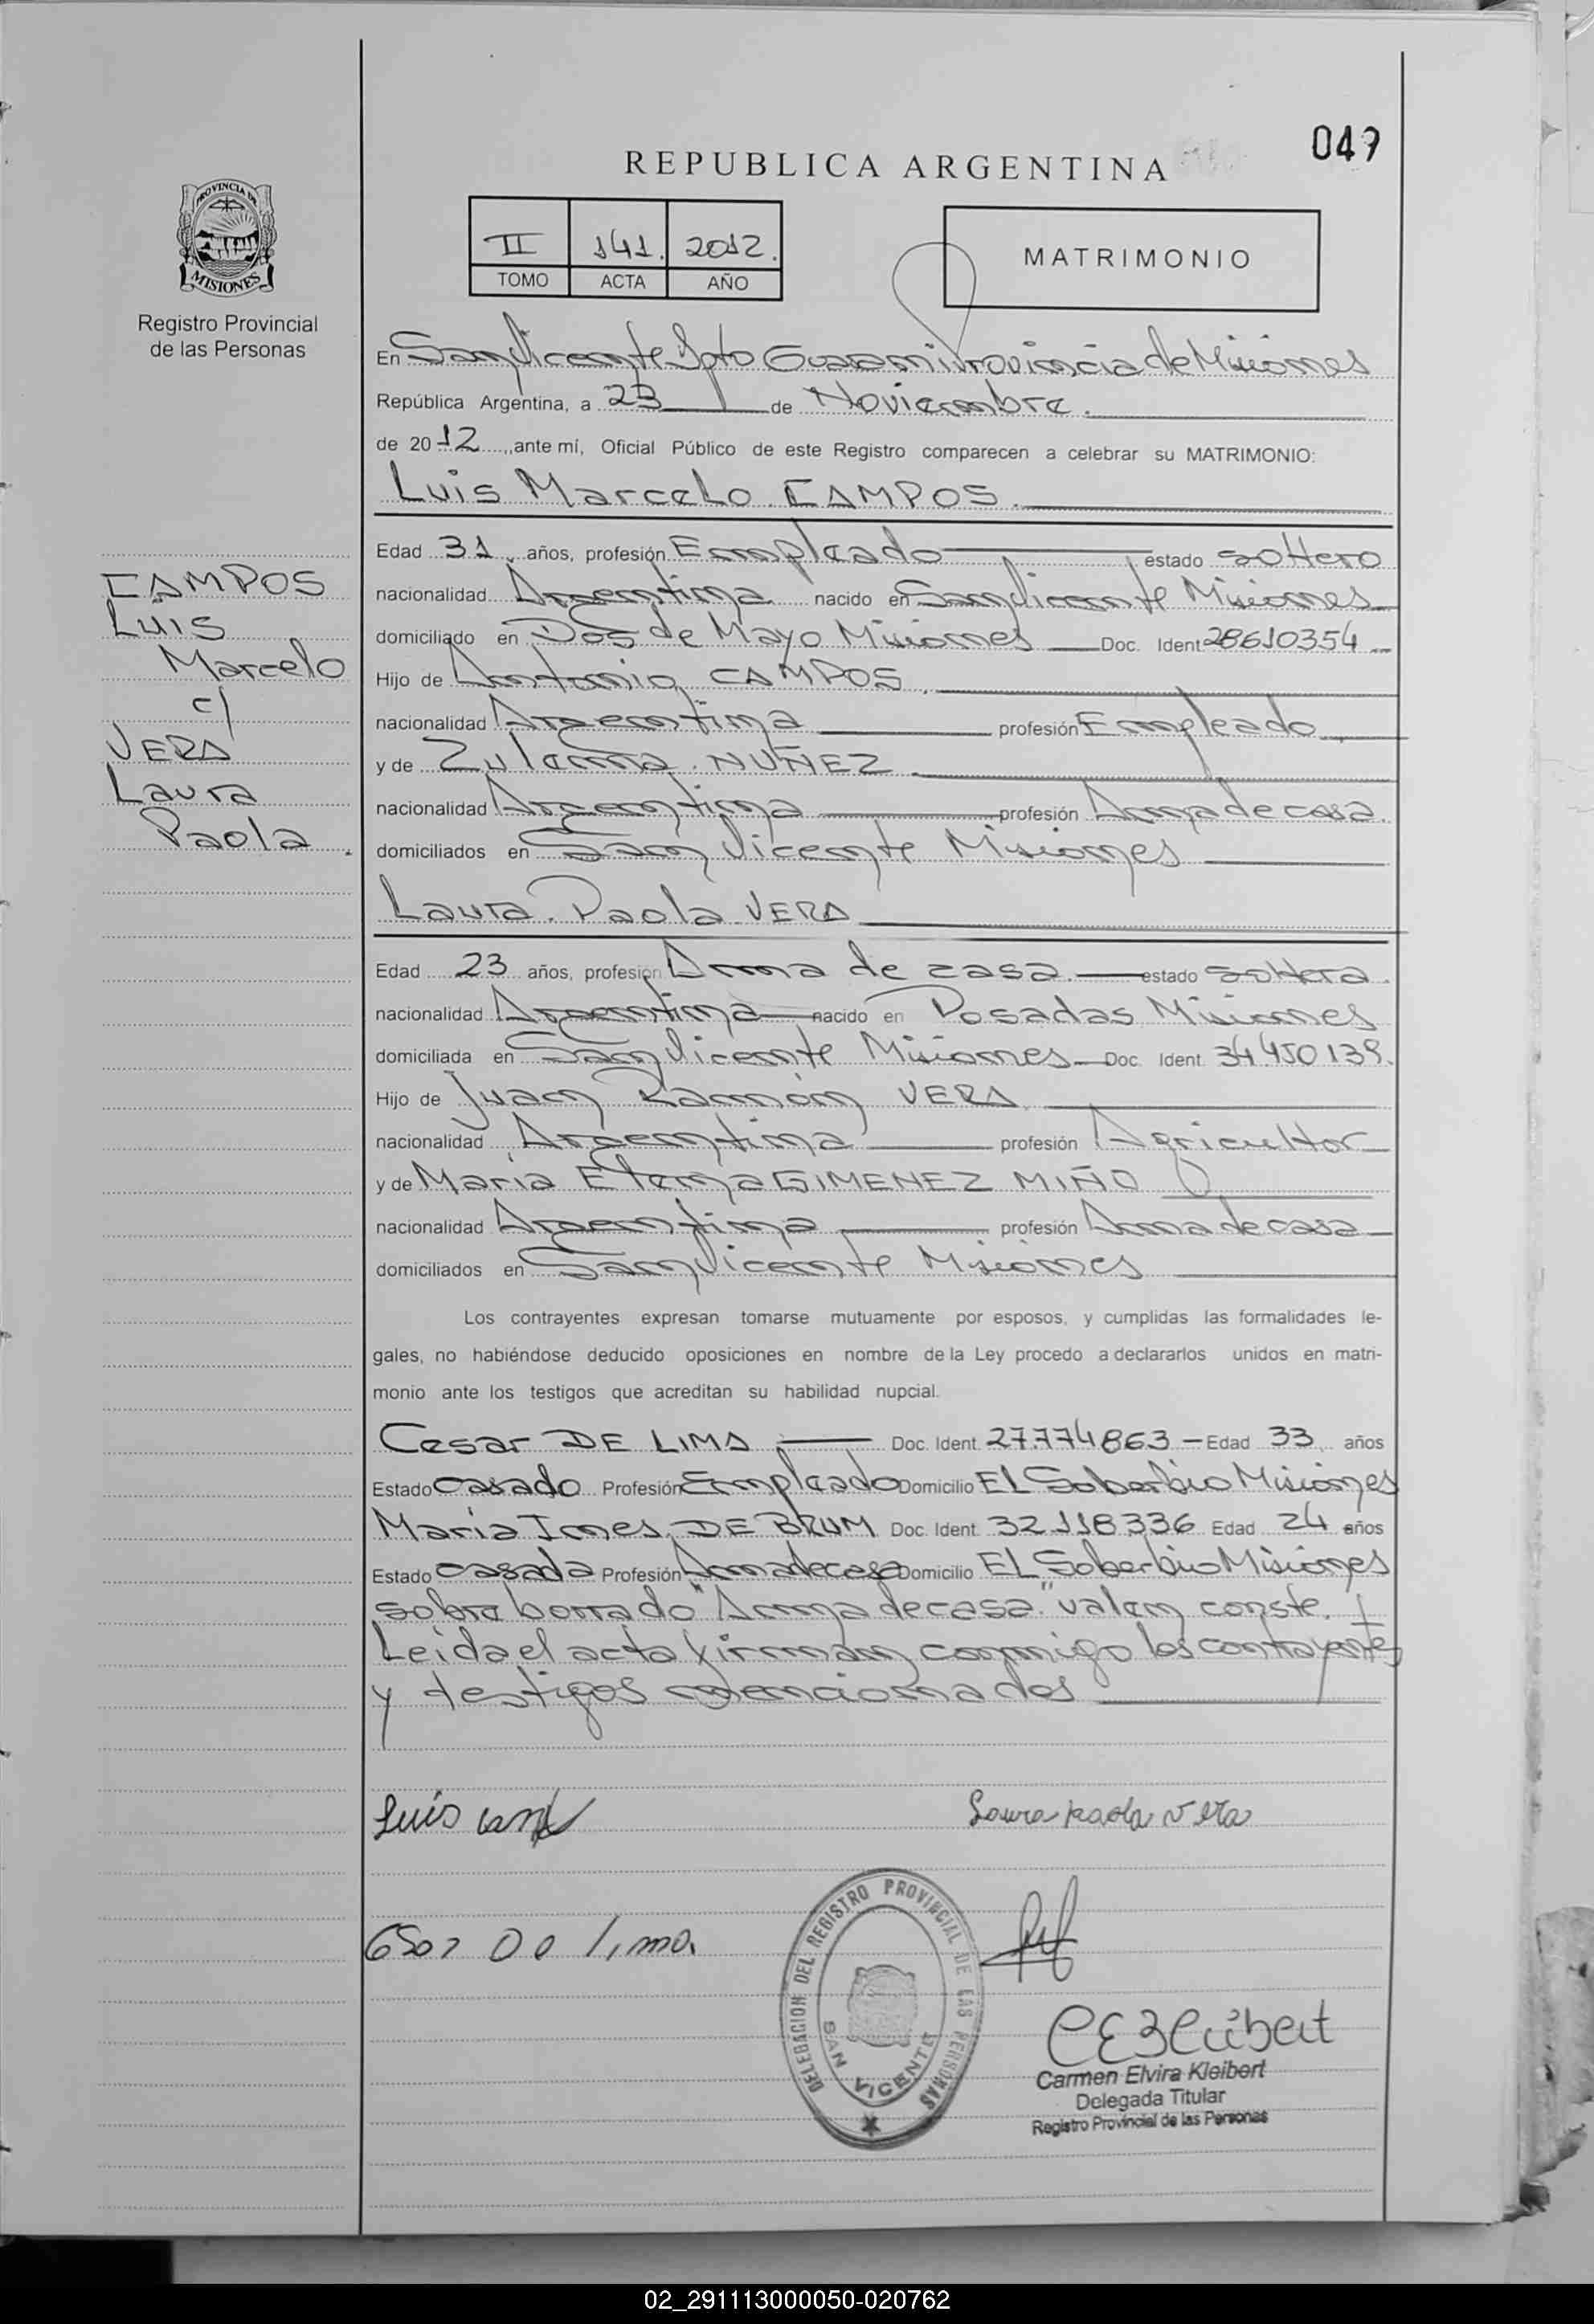 049
REPUBLICA ARGENTINA
PROVINCIA DE
MISIONES
Registro Provincial
de las Personas
II 141. 2012.
TOMO ACTA AÑO
MATRIMONIO
En San Vicente Dpto Guarani Provincia de Misiones
República Argentina, a 23 de Noviembre.
de 2012, ante mí, Oficial Público de este Registro comparecen a celebrar su MATRIMONIO:
Luis Marcelo CAMPOS.
CAMPOS
Luis
Marcelo
c/
VERA
Laura
Paola.
Edad 31, años, profesión Empleado estado soltero
nacionalidad Argentina nacido en San Vicente Misiones
domiciliado en Dos de Mayo Misiones Doc. Ident 28610354
Hijo de Antonio CAMPOS.
nacionalidad Argentina profesión Empleado
y de Zulema NUÑEZ.
nacionalidad Argentina profesión Ama de casa.
domiciliados en San Vicente Misiones
Laura Paola VERA
Edad 23 años, profesión Ama de casa. estado soltera.
nacionalidad Argentina nacido en Posadas Misiones
domiciliada en San Vicente Misiones Doc. Ident. 34.450139.
Hijo de Juan Ramón VERA
nacionalidad Argentina profesión Agricultor
y de María Elena GIMENEZ MIÑO
nacionalidad Argentina profesión Ama de casa
domiciliados en San Vicente Misiones
Los contrayentes expresan tomarse mutuamente por esposos, y cumplidas las formalidades le-
gales, no habiéndose deducido oposiciones en nombre de la Ley procedo a declararlos unidos en matri-
monio ante los testigos que acreditan su habilidad nupcial.
Cesar DE LIMA Doc. Ident. 27.774863 - Edad 33 años
Estado casado Profesión Empleado Domicilio EL Soberbio Misiones
María Ines DE BRUM Doc. Ident. 32.118336 Edad 24 años
Estado casada Profesión Ama de casa Domicilio EL Soberbio Misiones
sobre borrado "Ama de casa." valen conste.
Leida el acta firman conmigo los contrayentes
y testigos mencionados
Luis
Laura paola vera
lima
DELEGACION DEL REGISTRO PROVINCIAL DE LAS PERSONAS
SAN VICENTE
Carmen Elvira Kleibert
Delegada Titular
Registro Provincial de las Personas
02_291113000050-020762